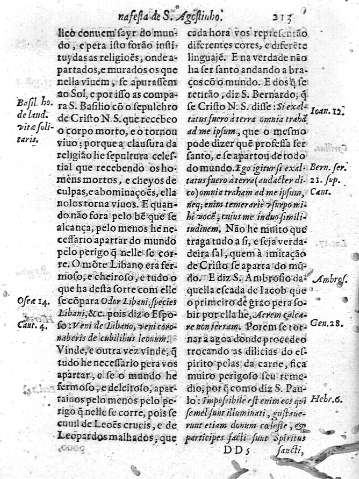 na festa de S. Agostinho. 213
lico conuem sayr do mun-
do, e pera isto forão insti-
tuydas as religioẽs, onde a-
partados, e murados os que
nella viuem, se apurassem
ao Sol, e por isso as compa-
ra S. Basilio cõ o sepulchro
de Cristo N S. que recebeo
o corpo morto, e o tornou
viuo; porque a clausura da
religião he sepultura celes-
tial que recebendo os ho-
mẽs mortos, e cheyos de
culpas, e abominações, ella
nolos torna viuos. E quan-
do não fora pelo bẽ que se
alcança, pelo menos he ne-
cessario apartar do mundo
pelo perigo q̃ nelle se cor-
re. O mõte Libano era fer-
moso, e cheiroso, e tudo o
que ha desta sorte com elle
se cõpara Odor Libani, species
Libani, &c. pois diz o Espo-
so: Veni de Libano, veni coro-
naberis de cubilibus leonum.
Vinde, e outra vez vinde, q̃
tudo he necessario pera vos
apartar, e se o mundo he
fermoso, e deleitoso, apar-
taiuos pelo menos pelo pe-
rigo q̃ nelle se corre, pois se
cuuil de Leoẽs crueis, e de
Leopardos malhados, que
Basil. ho.
de laud.
vitæ soli-
taris.
Oseæ 14.
Cant. 4.
cada hora vos representão
differentes cores, e differẽte
linguajẽ. E na verdade não
ha ser santo andando a bra-
ços cõ o mundo. E dos q̃ se
retirão, diz S. Bernardo, q̃
se Cristo N S. disse: Si exal-
tatus fuero à terra omnia trahã
ad me ipsum, que o mesmo
pode dizer quẽ professa ser
santo, e se apartou de todo
do mundo. Ego igitur si exal-
tatus fuero à terra (audacter di-
co) omnia traham ad me ipsum,
neq; enim temerariè vsurpo mi-
hi vocẽ, cuius me induo simili-
tudinem. Não he muito que
traga tudo a si, e seja verda-
deira sal, quem à imitação
de Cristo se aparta do mũ-
do. E diz S. Ambrosio da-
quella escada de Iacob que
o primeiro degrao pera so-
bir por ella he, Aerem calca-
re non fertam. Porem se tor-
nar a agoa dõnde procedeo
trocando as dilicias do es-
pirito pelas da carne, fica
muito perigoso seu reme-
dio, porq̃ como diz S. Pau-
lo: Impossibile est enim eos qui
semel sunt illuminati, gustaue-
runt etiam donum cæleste, et
participes facti sunt Spiritus
Ioan. 12.
Bern. ser.
21. sup.
Cant.
Ambros.
Gen. 28.
Hebr. 6.
DD 5 sancti,